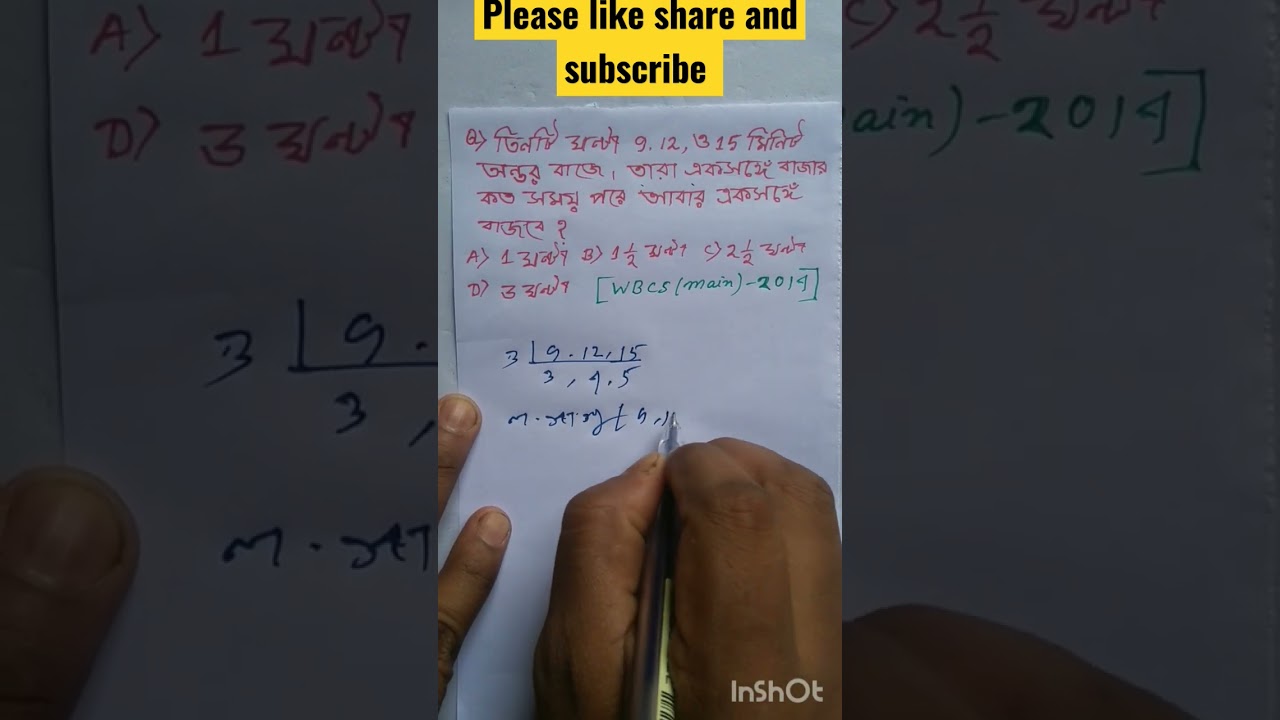 Please like share and
subscribe
Q) তিনটি ঘন্টা 9.12, ও 15 মিনিট
অন্তর বাজে। তারা একসঙ্গে বাজার
কত সময় পরে আবার একসঙ্গে
বাজবে ?
A) 1 ঘন্টা B) 1 1/2 ঘন্টা C) 2 1/2 ঘন্টা
D) ৩ ঘন্টা [WBCS (main) - 2014]
3 | 9 . 12, 15
3, 4. 5
ল. সা. গু ( 9,
A) 1 ঘন্টা
D) ৩ ঘন্টা
C) 2 1/2
ain) - 2014]
3 | 9.
3,
ল. সা
InShOt